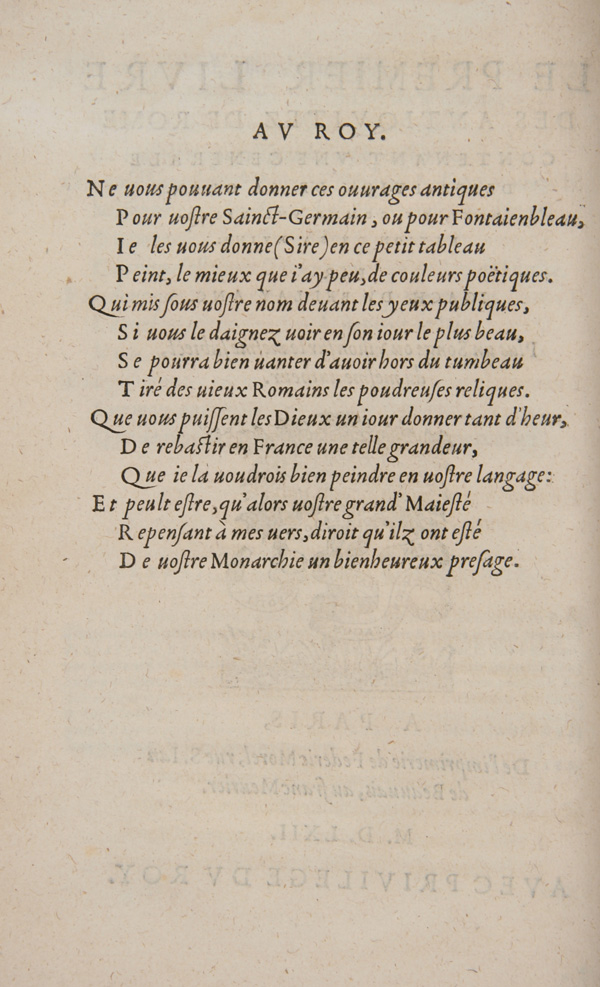 AV ROY.
Ne uous pouuant donner ces ouurages antiques
Pour uoſtre Sainct-Germain, ou pour Fontainebleau,
Ie les uous donne (Sire) en ce petit tableau
Peint, le mieux que i'ay peu, de couleurs poëtiques.
Qui mis ſous uoſtre nom deuant les yeux publiques,
Si uous le daignez uoir en ſon iour le plus beau,
Se pourra bien uanter d'auoir hors du tumbeau
Tiré des uieux Romains les poudreuſes reliques.
Que uous puiſſent les Dieux un iour donner tant d'heur,
De rebaſtir en France une telle grandeur,
Que ie la uoudrois bien peindre en uoſtre langage:
Et peult eſtre, qu'alors uoſtre grand' Maieſté
Repenſant à mes uers, diroit qu'ilz ont eſté
De uoſtre Monarchie un bienheureux preſage.
LE PREMIER LIVRE
DES ANTIQVITEZ DE ROME
CONTENANT VNE GENERALE
A PARIS,
De l'imprimerie de Federic Morel, rue S. Ian
de Beauuais, au franc Meurier.
M. D. LXII.
AVEC PRIVILEGE DV ROY.